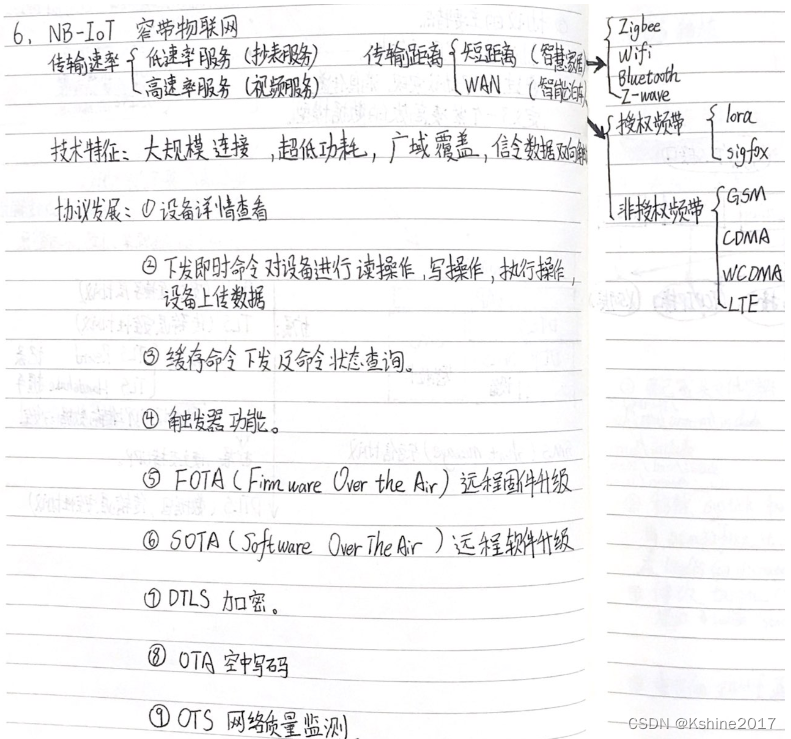 6. NB-IoT 窄带物联网
传输速率 { 低速率服务 (抄表服务) 传输距离 { 短距离 (智慧家居)
高速率服务 (视频服务) WAN (智能泊车)
Zigbee
Wifi
Bluetooth
Z-wave
授权频带 { lora
sigfox
非授权频带 { GSM
CDMA
WCDMA
LTE
技术特征: 大规模连接, 超低功耗, 广域覆盖, 信令数据双向
协议发展: ① 设备详情查看
② 下发即时命令对设备进行读操作, 写操作, 执行操作,
设备上传数据
③ 缓存命令下发及命令状态查询。
④ 触发器功能。
⑤ FOTA (Firmware Over the Air) 远程固件升级
⑥ SOTA (Software Over The Air) 远程软件升级
⑦ DTLS 加密。
⑧ OTA 空中写码
⑨ OTS 网络质量监测.
CSDN @Kshine2017